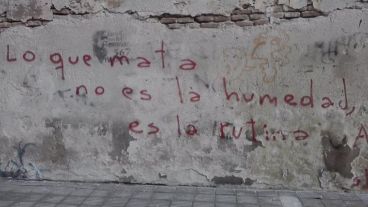 Lo que mata
no es la humedad,
es la rutina